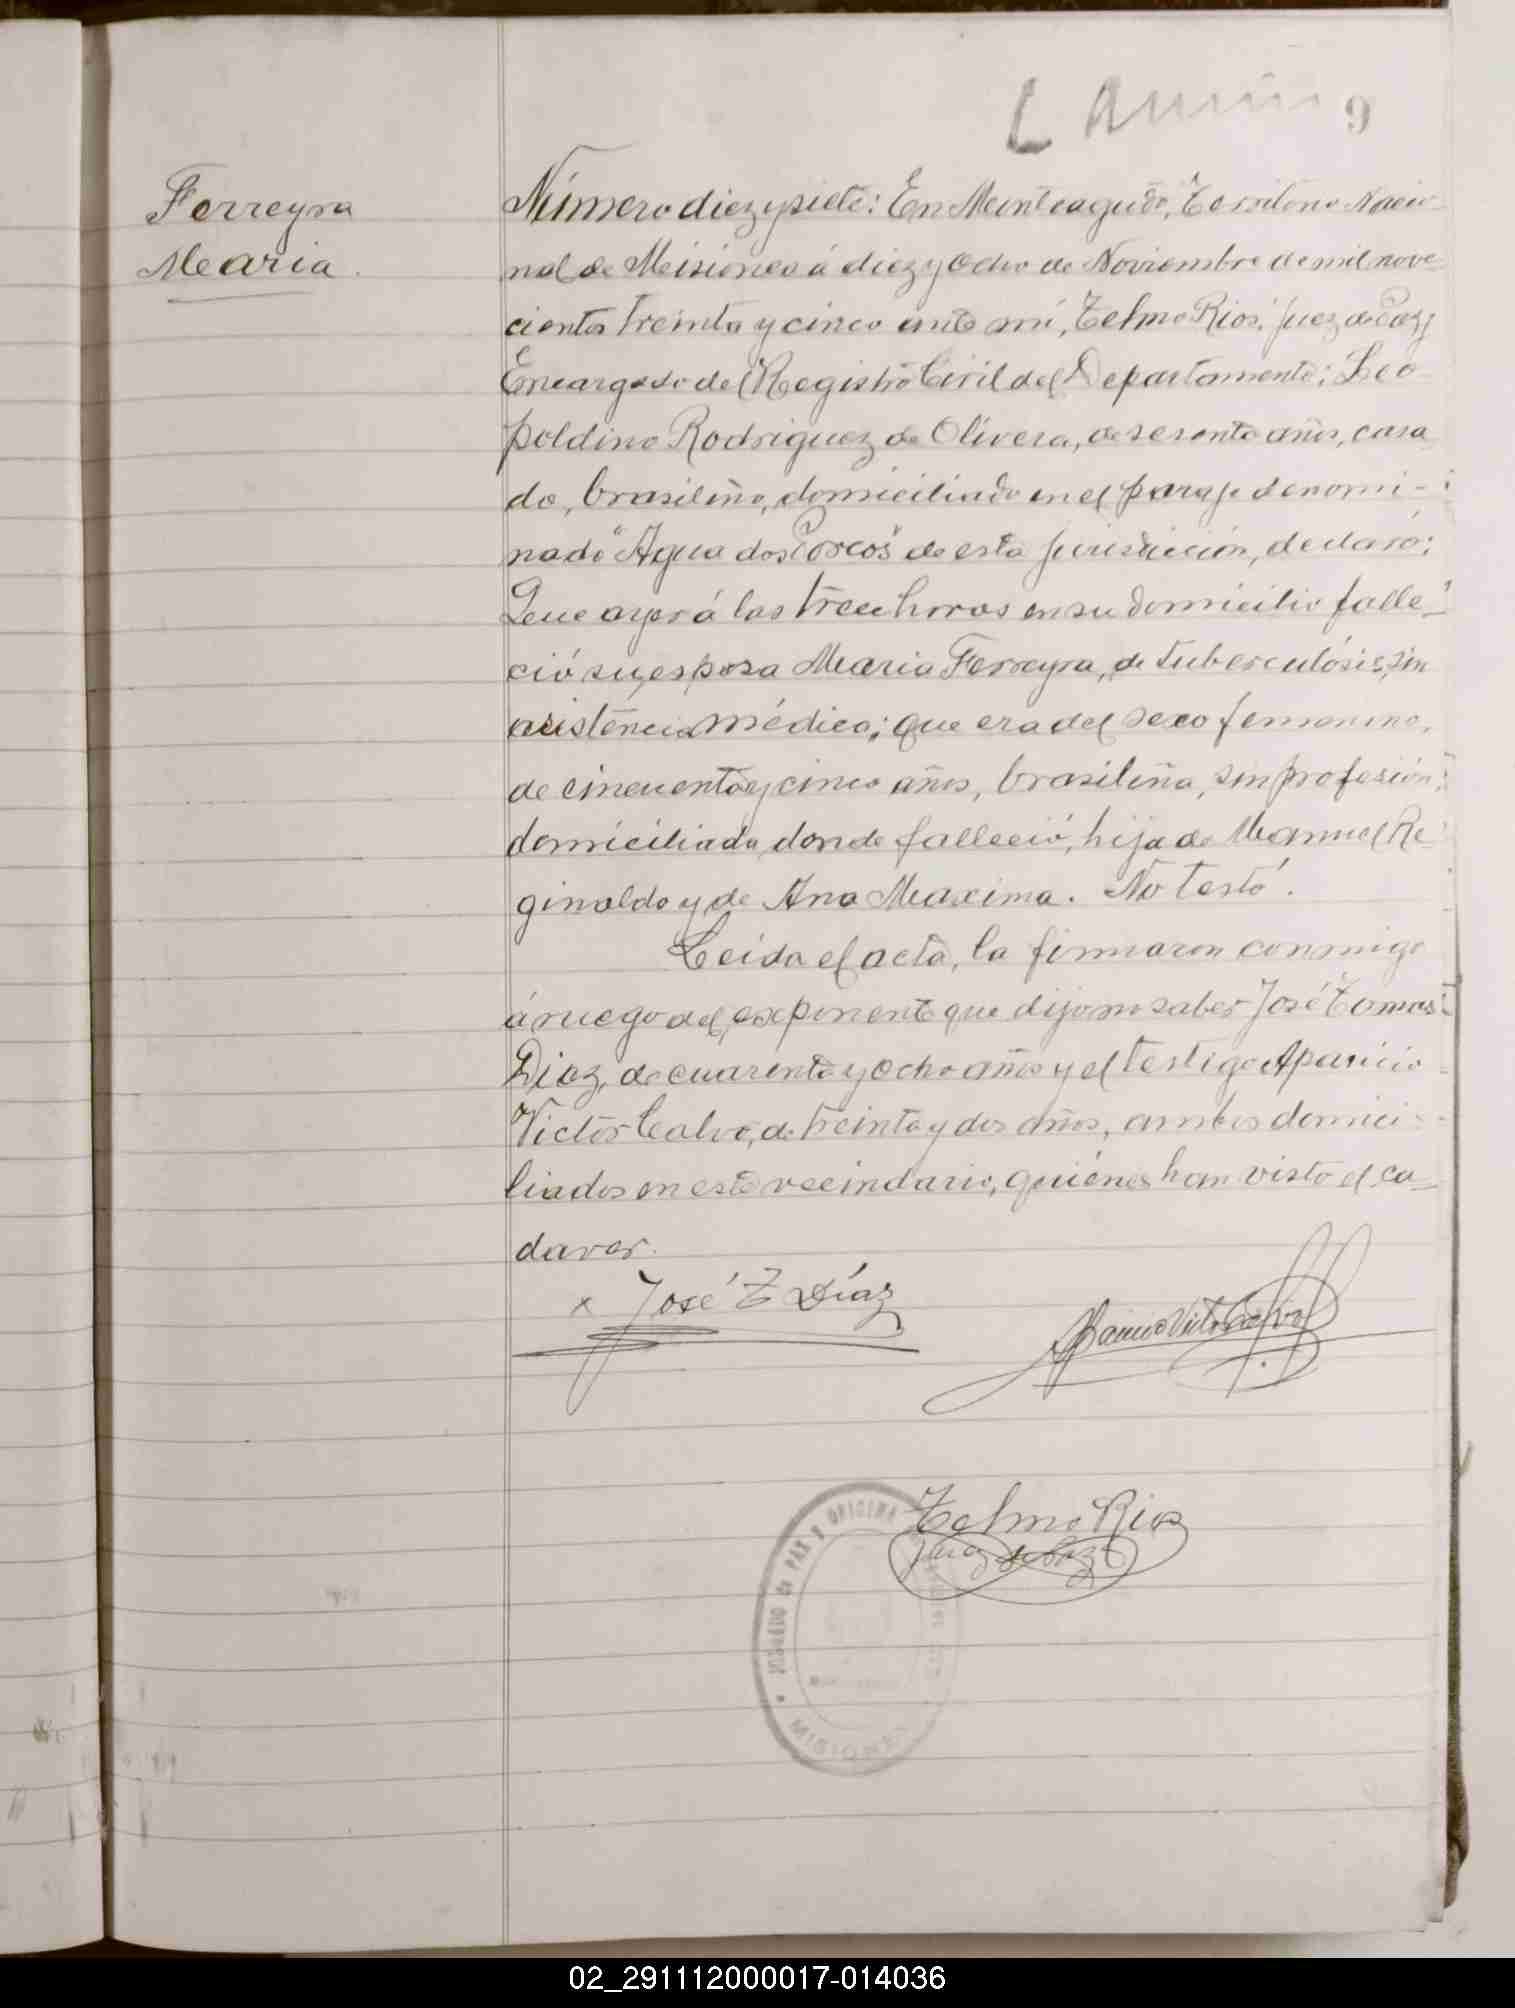 9
Ferreyra
Maria.
Número diez y siete: En Monteagudo, Territorio Nacio-
nal de Misiones á diez y ocho de Noviembre de mil nove-
cientos treinta y cinco ante mí, Telmo Rios, Juez de Paz y
Encargado del Registro Civil del Departamento; Leo-
poldino Rodriguez de Olivera, de sesenta años, casa-
do, brasileño, domiciliado en el paraje denomi-
nado "Agua dos Porcos" de esta jurisdicción, declaró:
Que ayer á las trece horas en su domicilio falle-
ció su esposa Maria Ferreyra, de tuberculósis, sin
asistencia médica; que era del sexo femenino,
de cincuenta y cinco años, brasileña, sin profesión,
domiciliada donde falleció, hija de Manuel Re-
ginaldo y de Ana Maxima. No testó.
Leída el acta, la firmaron conmigo
á ruego del exponente que dijo no saber José Tomas
Diaz, de cuarenta y ocho años y el testigo Aparicio
Victor Calvo, de treinta y dos años, ambos domici-
liados en este vecindario, quiénes han visto el ca-
daver.
x José T Díaz
Aparicio Victor Calvo
Telmo Rios
Juez de Paz
JUZGADO de PAZ Y OFICINA
MISIONES
02_291112000017-014036